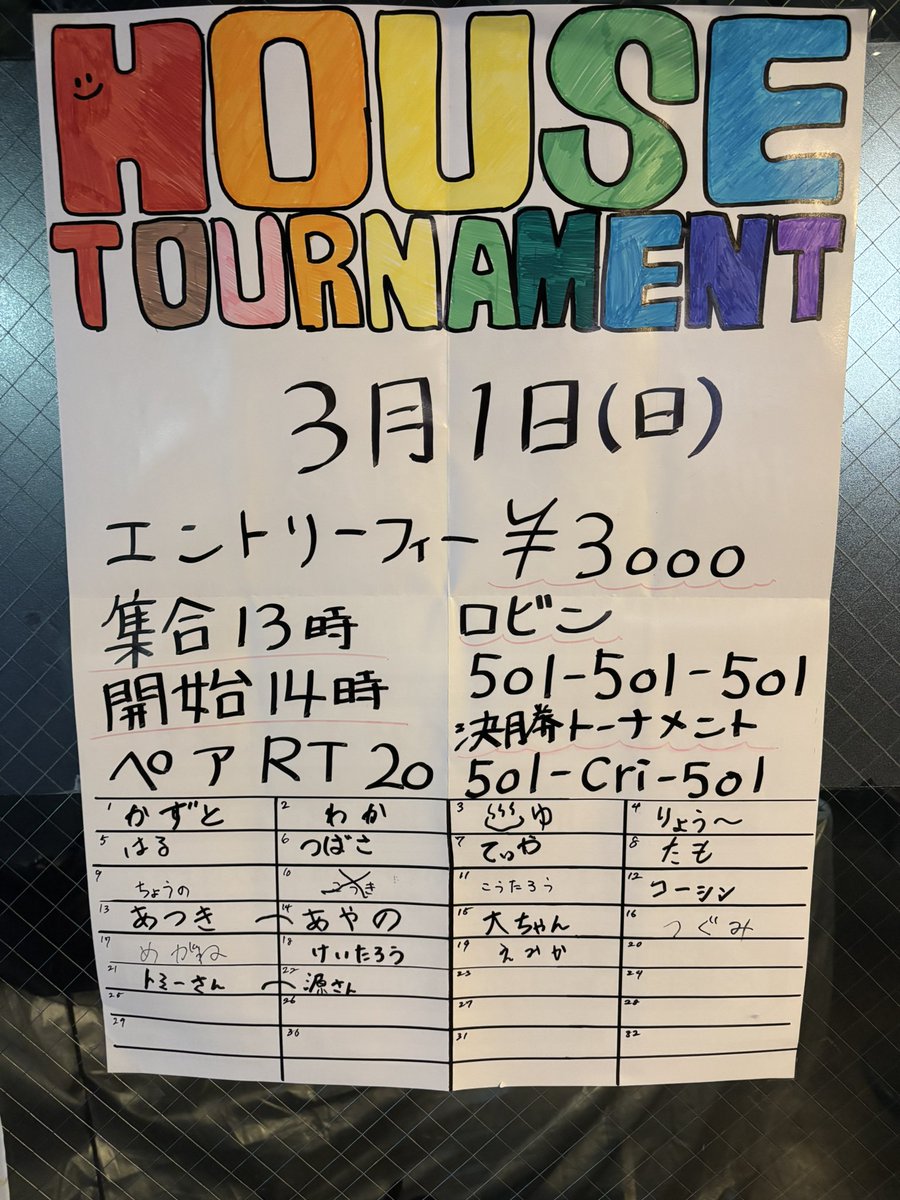 HOUSE
TOURNAMENT
3月1日(日)
エントリーフィー ¥3000
集合13時
開始14時
ペア RT 20
ロビン
501-501-501
決勝トーナメント
501-Cri-501
1 かずと 2 わか 3 ゆ 4 りょう〜
5 はる 6 つばさ 7 てぃや 8 たも
9 ちょうの 10 11 こうたろう 12 コーシン
13 あつき 14 あやの 15 大ちゃん 16 つぐみ
17 めがね 18 けいたろう 19 えみか 20
21 トミーさん 22 源さん 23 24
25 26 27 28
29 30 31 32